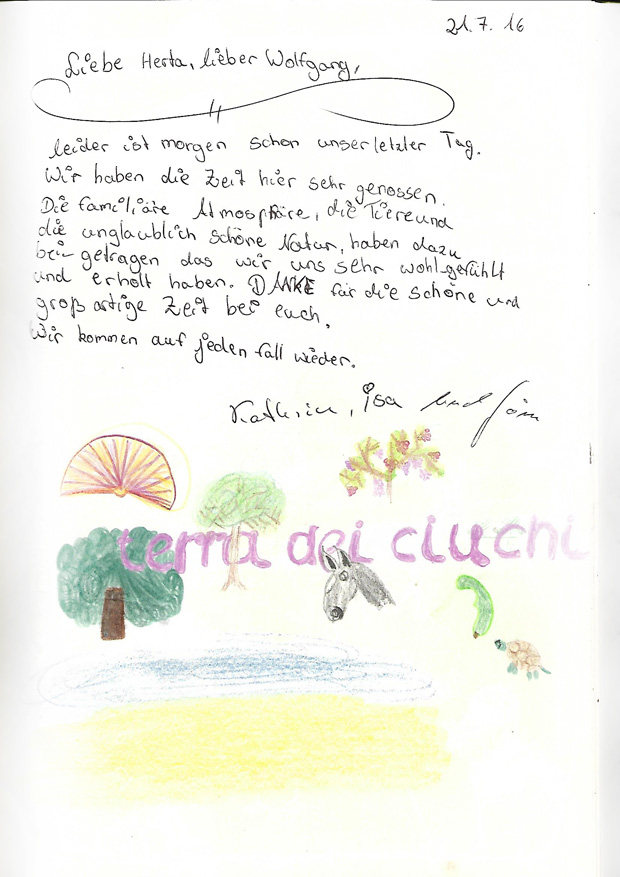 21.7.16
Liebe Herta, lieber Wolfgang,
leider ist morgen schon unser letzter Tag.
Wir haben die Zeit hier sehr genossen.
Die familiäre Atmosphäre, die Tiere und
die unglaublich schöne Natur, haben dazu
bei-getragen das wir uns sehr wohl-gefühlt
und erholt haben. DANKE für die schöne und
großartige Zeit bei euch.
Wir kommen auf jeden fall wieder.
Kathrin, Isa und Jörn
terra dei ciuchi